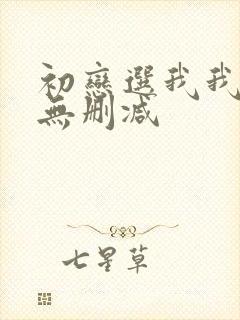 初戀選我我
無删減
七星草